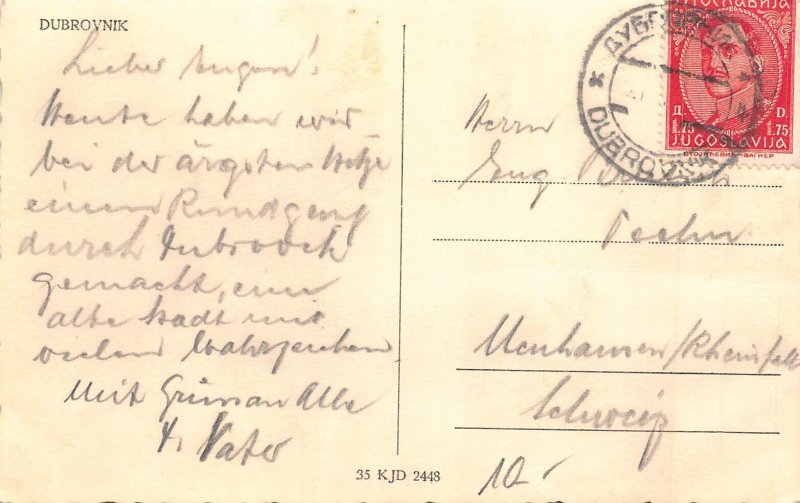 DUBROVNIK
Lieber Eugen!
Heute haben wir
bei der ärgsten Hetze
einem Rundgang
durch Dubrovnik
gemacht, eine
alte Stadt mit
vielen Wahrzeichen.
Mit Grüss an Alle
Vater
Herrn
Eug
Techn
Neuhausen/Rheinfall
Schweiz
10-
35 KJD 2448
ДУБРОВНИК
DUBROVNIK
ЈУГОСЛАВИЈА
Д. D.
1.75 1.75
JUGOSLAVIJA